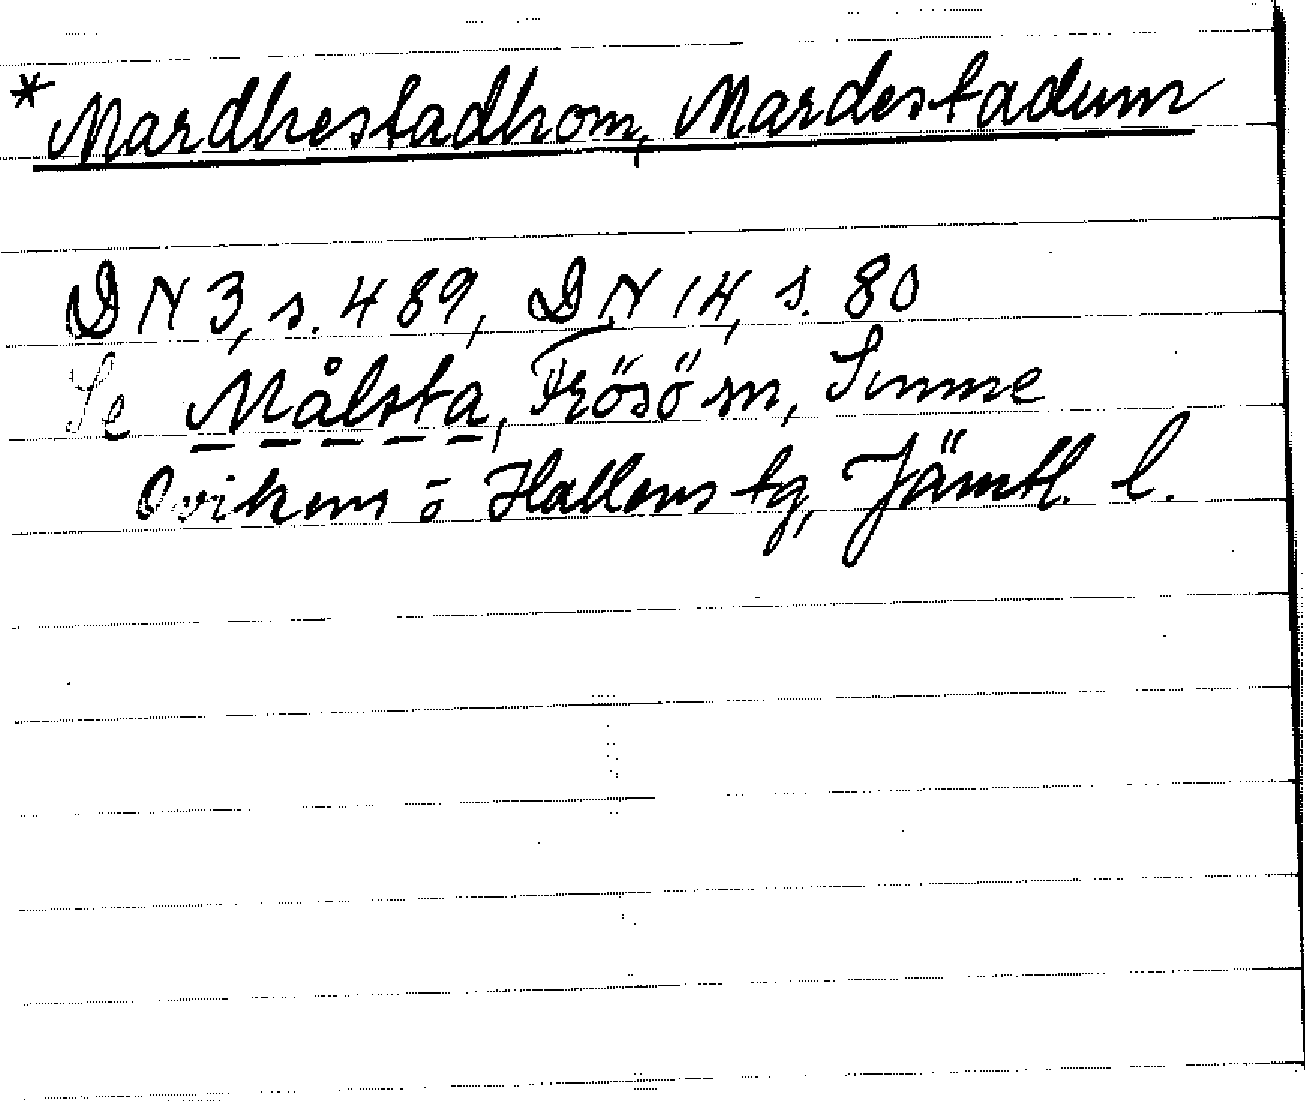 * Mardhestadhom, Mardestadum
DN 3, s. 489, DN 14, s. 80
Se Målsta, Frösö sn, Sunne
Oviken o Hallens tg, Jämtl. l.